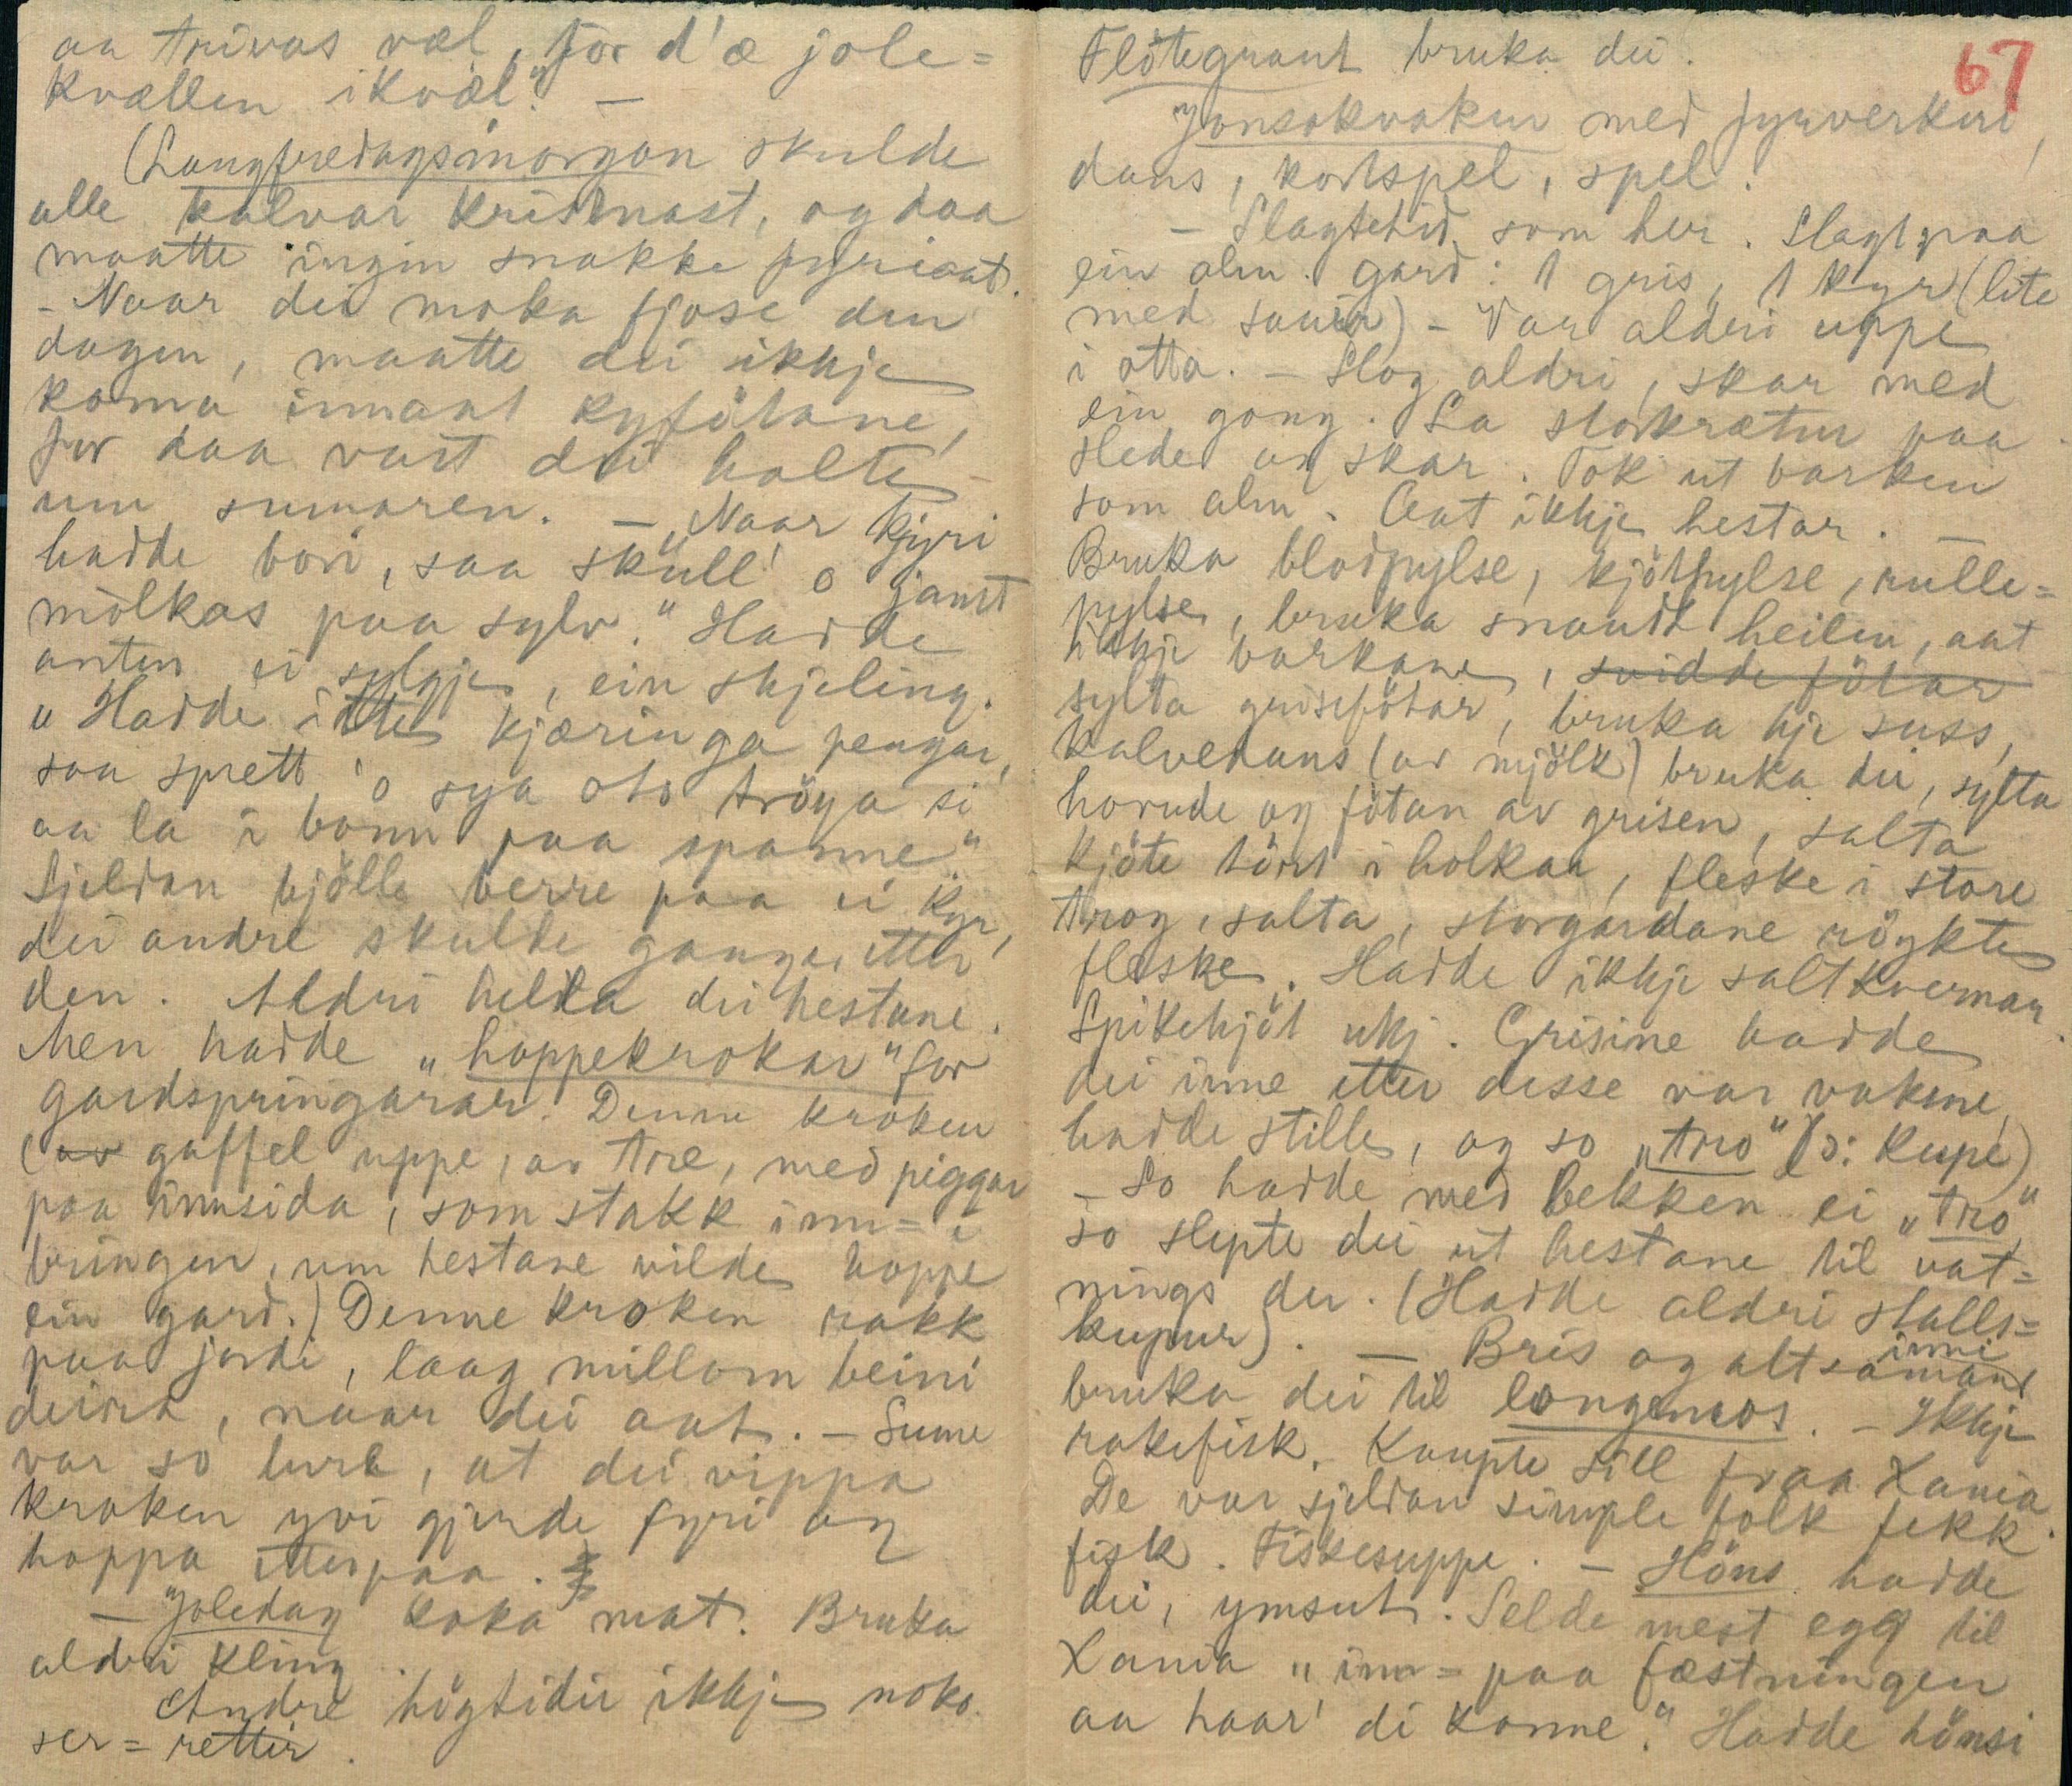 aa trivas væl, for d'æ jole=
kvællen ikvæl." —
(Langfredagsmorgon skulde
alle kalvar kristnast, og daa
maatte ingin snakke fyriaat.
- Naar dei moka fjose den
dagen, maatte dei ikkje
koma innaat kyfötane,
for daa vart dei halte
um sumaren. — „Naar kjyri
hadde bori, saa skull' o janst
mölkas paa sylv." Hadde
anten ei sylgje, ein skjeling.
„Hadde itte kjæringa pengar,
saa sprett 'o sya ota tröya si
aa la i bonn paa spanne."
Sjeldan bjölle berre paa ei kyr,
dei andre skulde ganga etter
den. Aldri helda dei hestane.
Men hadde „hoppekrokar" for
gardspringarar. Denne kroken
(av gaffel uppe, av tre, med piggar
paa innsida, som stakk inn= i
bringen, um hestane vilde hoppe
ein gard.) Denne kroken rakk
paa jordi, laag millom beini
deira, naar dei aat. — Sume
var so lure, at dei vippa
kroken yvi gjerde fyri og
hoppa etterpaa.
— Joledag koka mat. Bruka
aldri kling.
Andre högtider ikkje noko
ser= rettir.
Flötegraut bruka dei.
67
Jonsokvaken med fyrverkeri,
dans, kortspel, spel.
- Slagtetid som her. Slagt paa
ein alm. gard: 1 gris, 1 kyr (lite
med sauir) - Var alderi uppe
i otta. - Slog aldri, skar med
ein gong. La storkrætur paa
slede og skar. Tok ut barken
som alm. Aat ikkje hestar. —
Bruka blodpylse, kjötpylse, rulle=
pylse, bruka snaudt heilen, aat
ikkje barkane, svidde fötar
sylta grisefötar, bruka kje suss,
kalvedans (av mjölk) bruka dei, sylta
hovude og fötan av grisen, salta
kjöte tört i holkar, fleske i store
trog, salta, storgardane röykte
fleske. Hadde ikkje saltkvernar.
Spikekjöt ikkj. Grisine hadde
dei inne etter desse var vaksne,
hadde stille, og so „tro" (ɔ: kupe)
- So hadde med bekken ei „tro"
so slepte dei ut hestane til vat=
nings der. (Hadde aldri stalls=
kupur). — Bris og alt saman
inni
bruka dei til longemos. - Ikkje
rakefisk. Kaupte sill fraa Xania.
De var sjeldan simple folk fekk
fisk. Fiskesuppe. - Höns hadde
dei, ymsut. Selde mest egg til
Xania „inn= paa fæstningen
aa haar' di konne." Hadde hönsi